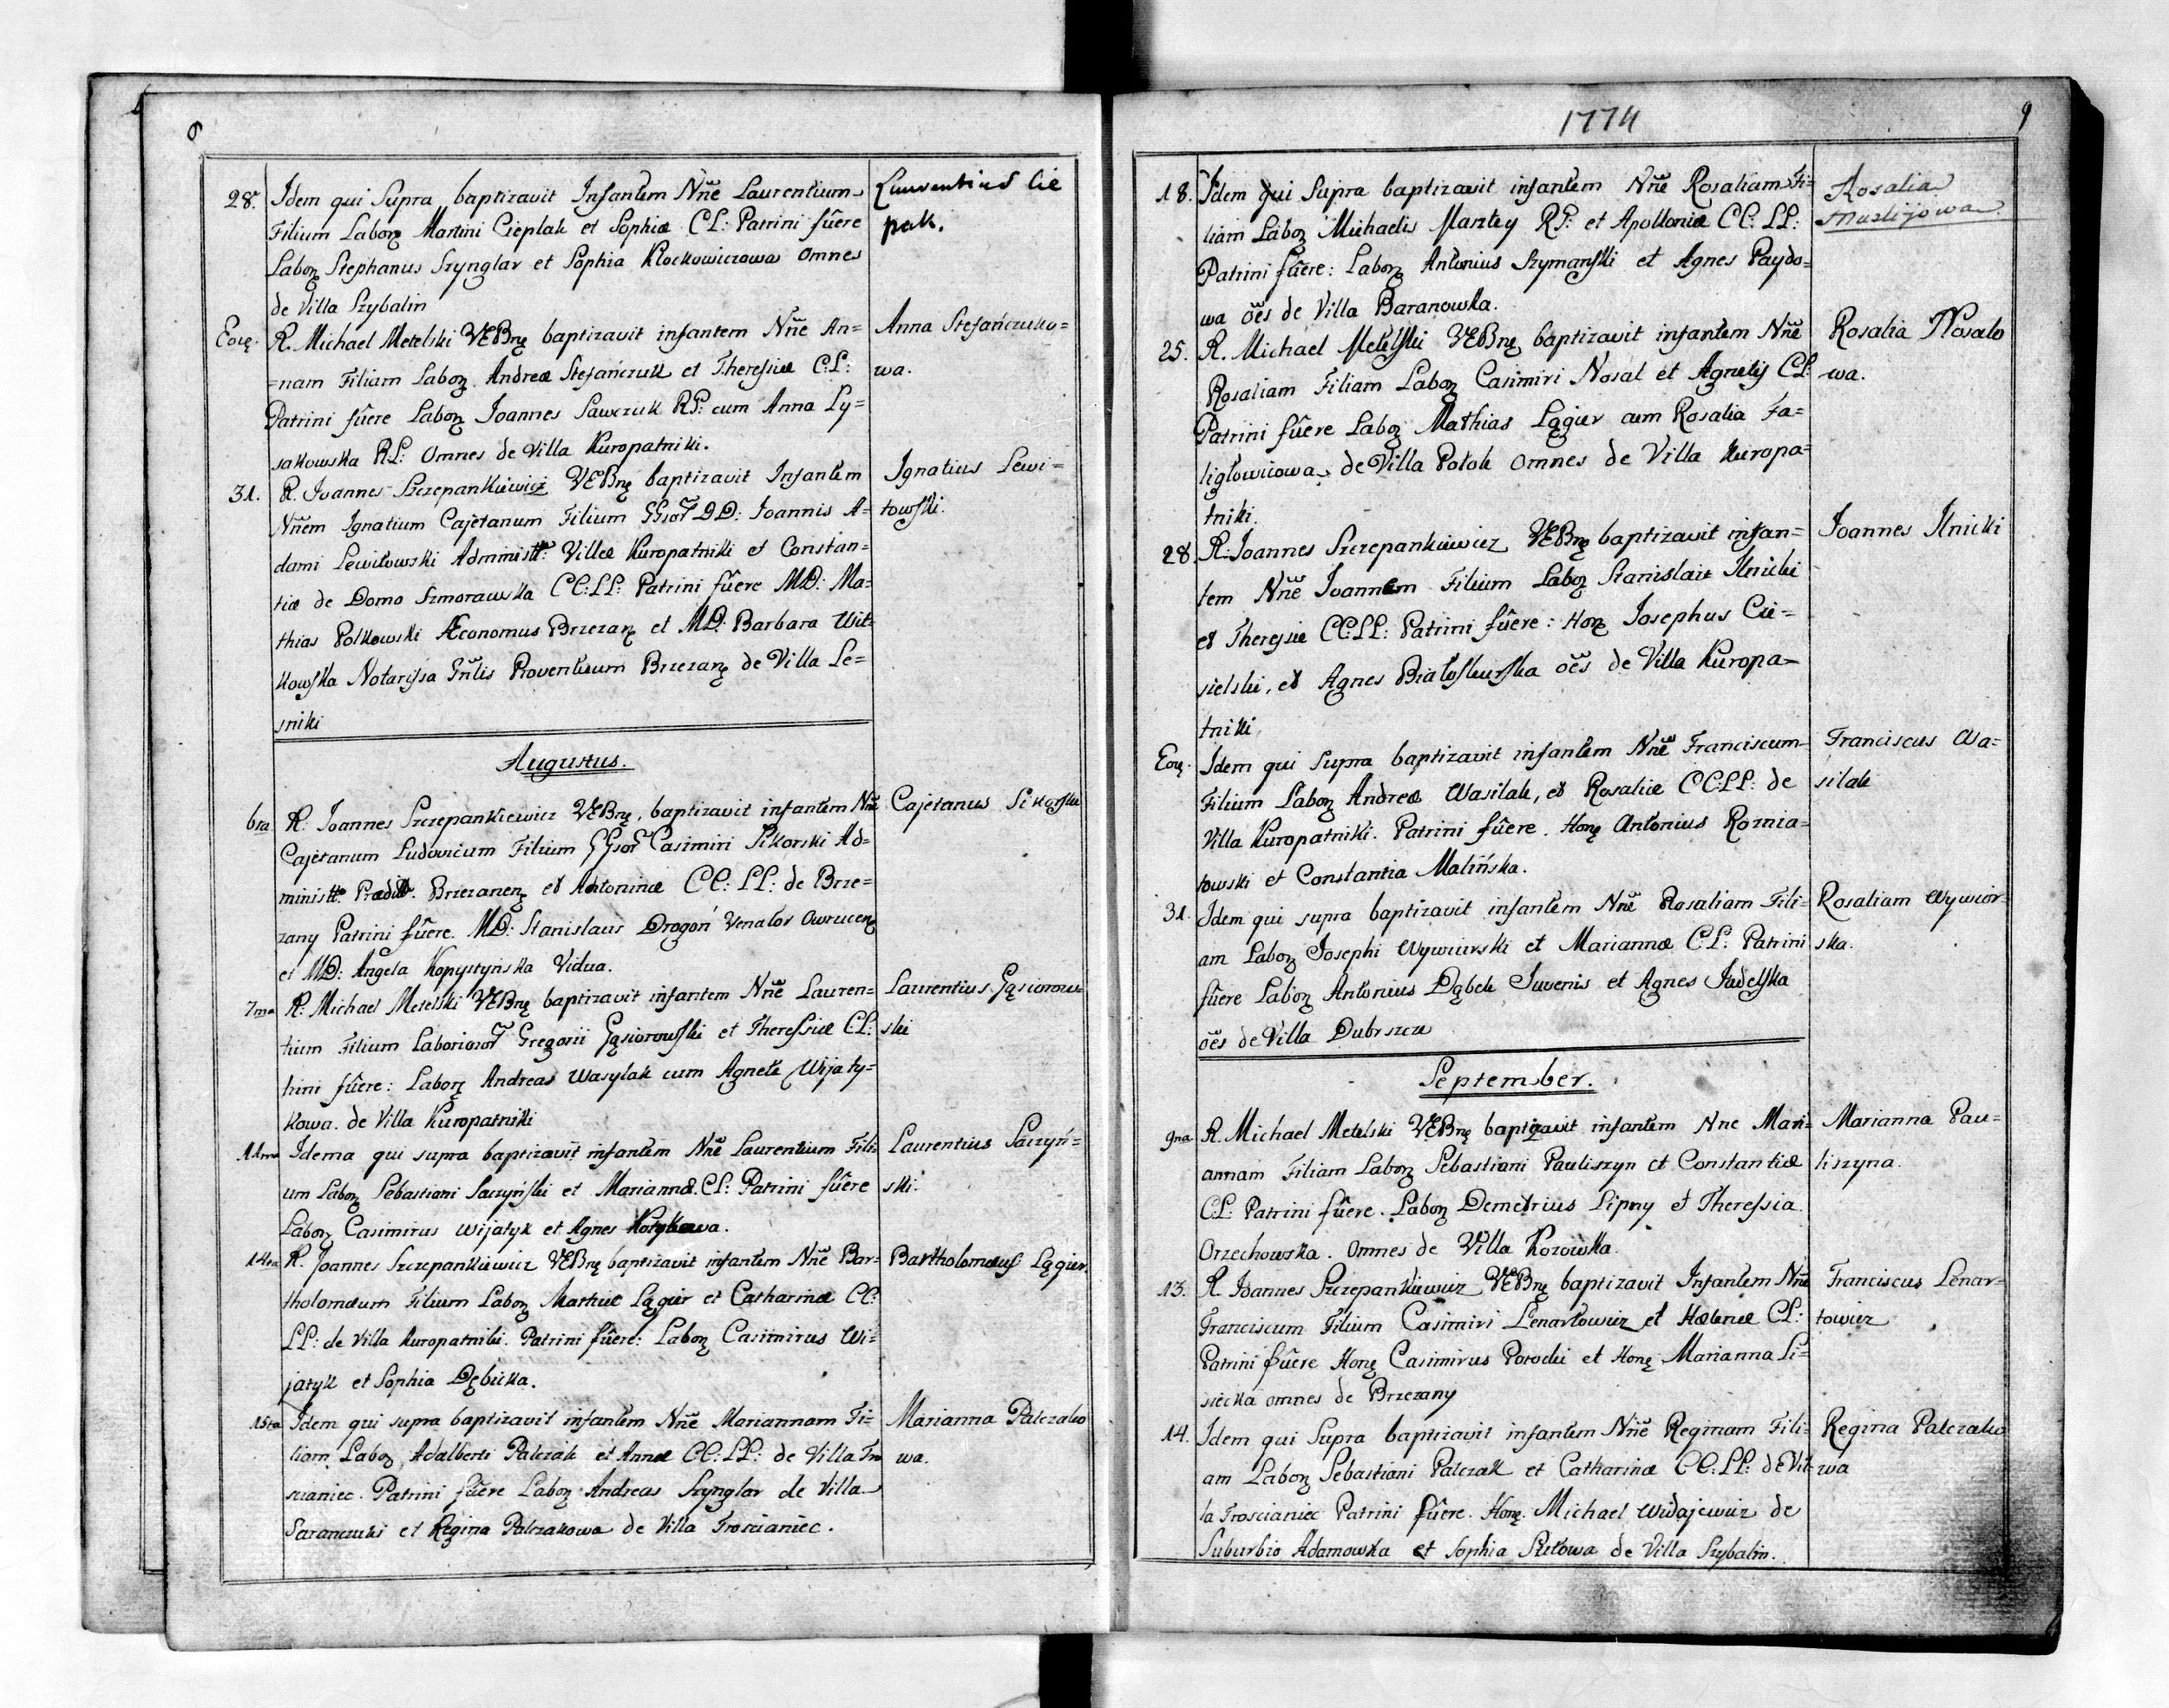 6
28. Idem qui Supra baptizavit Infantem Nñe Laurentium
Filium Laborz Martini Cieplak et Sophiæ C.L: Patrini fûere
Laborz Stephanus Szynglar et Sophia Klockowiczowa omnes
de Villa Szybalin
Laurentius Cie
pak.
Eoę. R. Michael Metelski VEBnę baptizavit infantem Nñe An=
=nam Filiam Laborz Andreæ Stefańczuk et Theressiæ C.L:
Patrini fûere Laborz Joannes Sawczuk RP: cum Anna Ly=
sakowska RL: Omnes de Villa Kuropatniki.
Anna Stefańczuko=
wa.
31. R. Joannes Szczepankiewicz VEBnę baptizavit Infantem
Nñem Ignatium Cajetanum Filium GGsor DD: Joannis A=
dami Lewitowski Administr: Villæ Kuropatniki et Constan=
tiæ de Domo Szmorawska CC:LL: Patrini fûere MD: Ma=
thias Polkowski Æconomus Brzezanę et MD: Barbara Wit=
kowska Notarissa Gñlis Proventuum Brzezanę de Villa Le=
sniki
Ignatius Lewi=
towski.
Augustus.
6ta R. Joannes Szczepankiewicz VEBnę, baptizavit infantem Nñe
Cajetanum Ludovicum Filium GGsor Casimiri Sikorski Ad=
ministr. Brzezanenz et Antoninæ CC: LL: de Brze=
zany Patrini fûere. MD: Stanislaus Drogoń Venator Owrucenę
et MD: Angela Kopystyńska Vidua.
Cajetanus Sikorski
7ma R. Michael Metelski VEBnę baptizavit infantem Nñe Lauren=
tium Filium Laboriosor Gregorii Gąsiorowski et Theressiæ CL:
trini fûere: Laborz Andreas Wasylak cum Agnete Wijaty=
kowa. de Villa Kuropatniki
Laurentius Gąsiorow
ski
11ma Idema qui supra baptizavit infantem Nñe Laurentium Fili=
um Laborz Sebastiani Saczyński et Mariannæ. CL: Patrini fûere
Laborz Casimirus Wijatyk et Agnes
Laurentius Saczyń=
ski.
14ta R. Joannes Szczepankiewicz VEBnę baptizavit infantem Nñe Bar=
tholomæum Filium Laborz Lągier et Catharinæ CC:
LL: de Villa Kuropatniki. Patrini fûere: Laborz Casimirus Wi=
jatyk et Sophia Dębicka.
Bartholomæus Lągier.
15ta Idem qui supra baptizavit infantem Nñe Mariannam Fi=
liam Laborz Adalberti Palczak et Annæ CC: LL: de Villa Tro
scianiec. Patrini fûere Laborz Andreas Szynglar de Villa
Saranczuki et Regina Palczakowa de Villa Troscianiec.
Marianna Palczako
wa.
1774
9
18. Idem qui Supra baptizavit infantem Nñe Rosaliam Fi=
liam Laborz Michaelis Mantey RP: et Apolloniæ CC: LL:
Patrini fûere: Laborz Antonius Szymański et Agnes Paydo=
wa oẽs de Villa Baranowka.
Rosalia
25. R. Michael Metelski VEBnę baptizavit infantem Nñe
Rosaliam Filiam Laborz Casimiri Nosal et Agnetis CL:
Patrini fûere Laborz Mathias Lągier cum Rosalia Fa=
ligłowiczowa, de Villa Potok omnes de Villa Kuropa=
tniki.
Rosalia Nosalo
wa.
28. R. Joannes Szczepankiewicz VEBnę baptizavit infan=
tem Nñe Joannem Filium Laborz Stanislai Ilnicki
et Theressiæ CC:LL: Patrini fûere: Honz Josephus Cie=
sielski, et Agnes Białoskurska oẽs de Villa Kuropa=
tniki.
Joannes Ilnicki
Eoę. Idem qui Supra baptizavit infantem Nñe Franciscum
Filium Laborz Andreæ Wasilak, et Rosaliæ CC:LL: de
Villa Kuropatniki. Patrini fûere. Honę Antonius Roznia=
towski et Constantia Malińska.
Franciscus Wa=
silak
31. Idem qui supra baptizavit infantem Nñe Rosaliam Fili=
am Laborz Josephi Wywiurski et Mariannæ C.L: Patrini
fûere Laborz Antonius Dąbek Juvenis et Agnes Jadelska
oẽs de Villa Dubrszcze
Rosaliam Wywior=
ska.
September.
9na R. Michael Metelski VEBnę baptizavit infantem Nne Mari=
annam Filiam Laborz Sebastiani Pauliszyn et Constantiæ
CL: Patrini fûere. Laborz Demetrius Lipny et Theressia
Orzechowska. Omnes de Villa Kozowka.
Marianna Pau=
liszyna.
13. R. Joannes Szczepankiewicz VEBnę baptizavit Infantem Nñe
Franciscum Filium Casimiri Lenartowicz et Hælenæ CL:
Patrini fûere Honę Casimirus Potocki et Honę Marianna Si=
siecka omnes de Brzezany
Franciscus Lenar=
towicz
14. Idem qui Supra baptizavit infantem Nñe Reginam Fili=
am Laborz Sebastiani Palczak et Catharinæ CC:LL: de Vil=
la Troscianiec Patrini fûere. Honę. Michael Widajewicz de
Suburbio Adamowka et Sophia Szitowa de Villa Szybalin.
Regina Palczako
wa